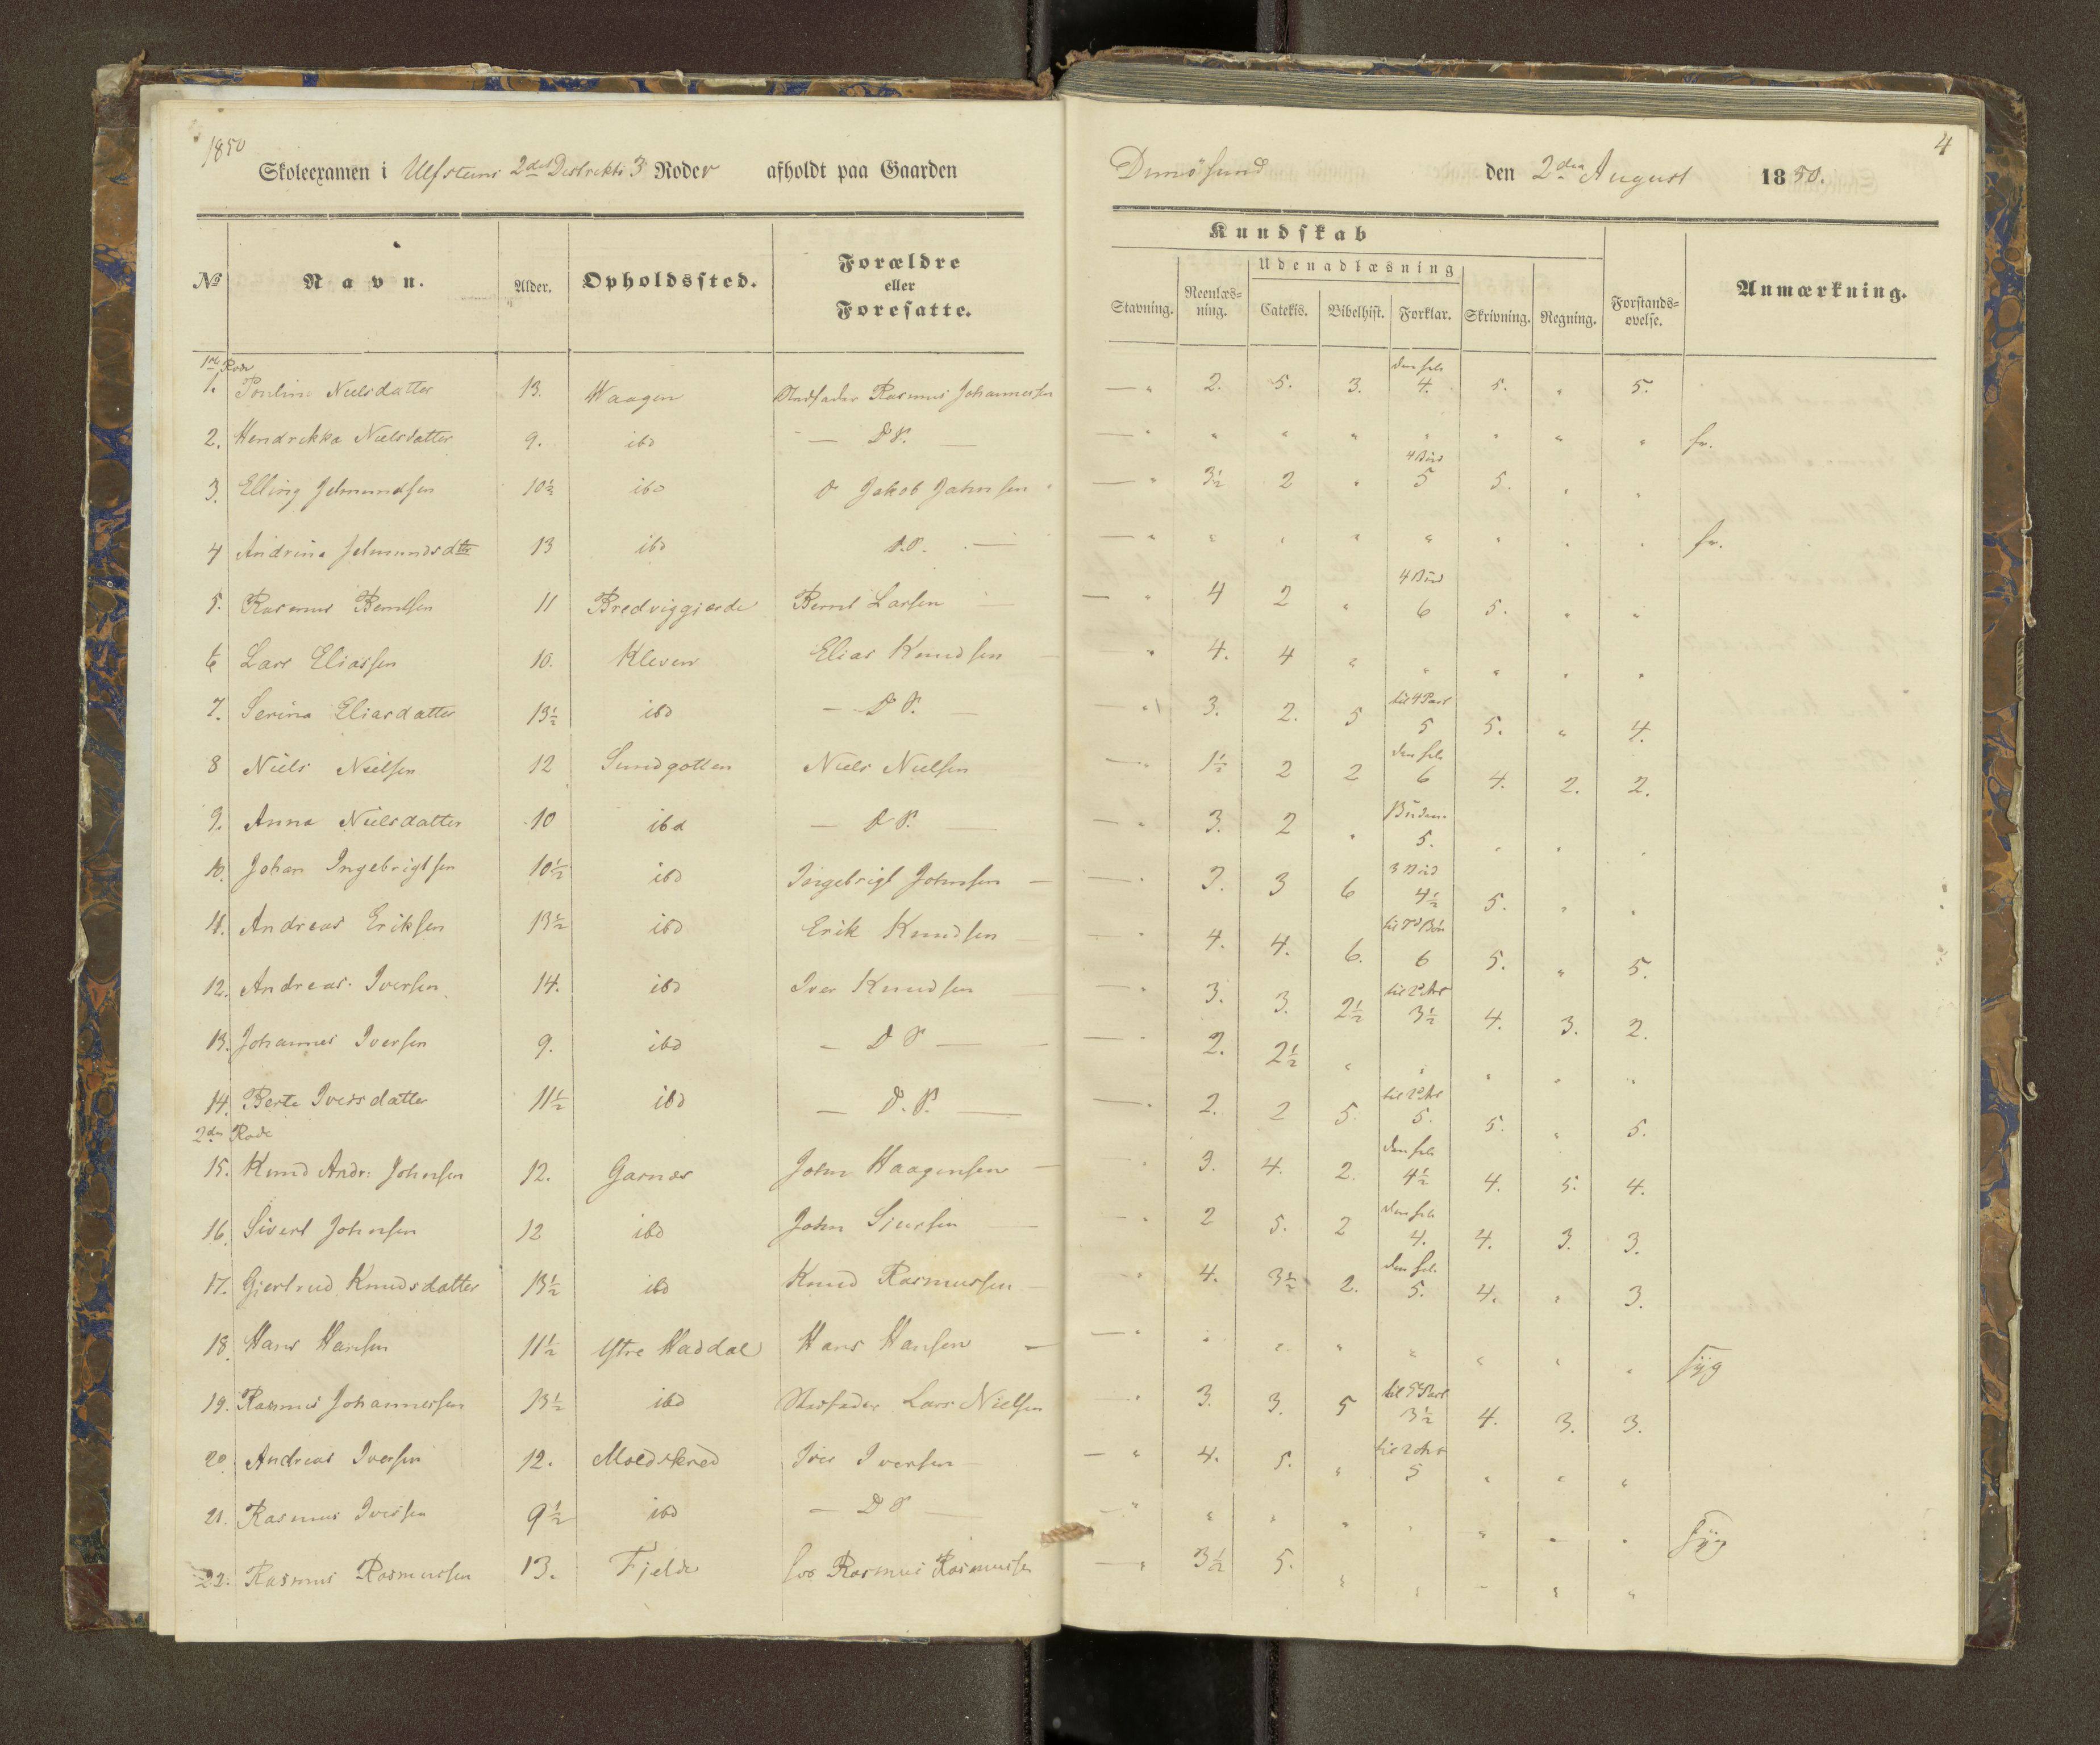 1850
Skoleexamen i Ulfsteens 2det Distrikts 3 Roder afholdt paa Gaarden
Dimösund den 2den August 1850.
4
Kundskab
Udenadlæsning
No Navn. Alder. Opholdssted. Forældre eller Foresatte. Stavning. Reenlæsning. Catekis. Bibelhist. Forklar. Skrivning. Regning. Forstandsøvelse. Anmærkning.
1ste Rode
den hele
1. Pouline Nielsdatter 13. Waagen Stedfader Rasmus Johannessen — " 2. 5. 3. 4. 5. " 5.
2. Hendrikka Nielsdatter 9. ibd — D P. — — " " " " " " " " fr.
4 Bud
3. Elling Jetmundsen 10½ ibd Jakob Johnsen — " 3½ 2 " 5 5. " "
4 Andrina Jetmundsdtr 13 ibd D.P. — — " " " " " " " " fr.
4 Bud
5. Rasmus Berntsen 11 Bredviggjerde Bernt Larsen — " 4 2 " 6 5. " "
6 Lars Eliassen 10. Kleven Elias Knudsen — " 4. 4 " " " " "
til 4 Part
7. Serina Eliasdatter 13½ ibd — D P. — — " 3. 2. 5 5 5. " 4.
den hele
8 Niels Nielsen 12 Sundgotten Niels Nielsen — " 1½ 2 2 6 4. 2. 2.
Budene
9. Anna Nielsdatter 10 ibd — D P. — — " 3. 2 " 5. " " "
3 Bud
10. Johan Ingebrigtsen 10½ ibd Ingebrigt Johnsen — — " 3. 3 6 4½ 5. " "
til 7d Bøn
11. Andreas Eriksen 13½ ibd Erik Knudsen — — " 4. 4. 6. 6 5. " 5.
til 2d Art
12. Andreas Iversen 14. ibd Iver Knudsen — — " 3. 3. 2½ 3½ 4. 3. 2.
13. Johannes Iversen 9. ibd — D P — — " 2. 2½ " " " " "
til 2d Art
14. Berte Iversdatter 11½ ibd — D. P. — — " 2. 2 5. 5. 5. " 5.
2den Rode
den hele
15. Knud Andr: Johnsen 12. Garnæs John Haagensen — — " 3. 4. 2. 4½ 4. 5. 4.
den hele
16. Sivert Johnsen 12 ibd John Sjursen — — " 2 5. 2 4. 4. 3. 3.
den hel.
17. Gjertrud Knudsdatter 13½ ibd Knud Rasmussen — — " 4. 3½ 2. 5. 4. " 3.
18. Hans Hansen 11½ Ytre Haddal Hans Hansen — — " " " " " " " " syg
til 5 Part
19. Rasmus Johannessen 13½ ibd Stedfader Lars Nielsen — " 3. 3. 5 3½ 4. 3. 3.
til 2d Art
20. Andreas Iversen 12. Moldskred Iver Iversen — " 4. 5. " 5 " " "
21. Rasmus Iversen 9½ ibd — D P — — " " " " " " " " syg
22. Rasmus Rasmussen 13. Fjelde hos Rasmus Rasmussen — " 3½ 5. " " " " "